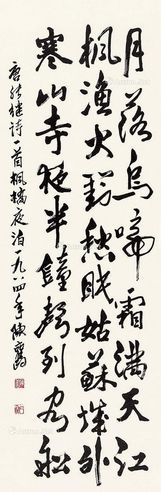 月落乌啼霜满天江
枫渔火对愁眠姑苏城外
寒山寺夜半钟声到客船
唐张继诗一首枫桥夜泊一九八四年陈